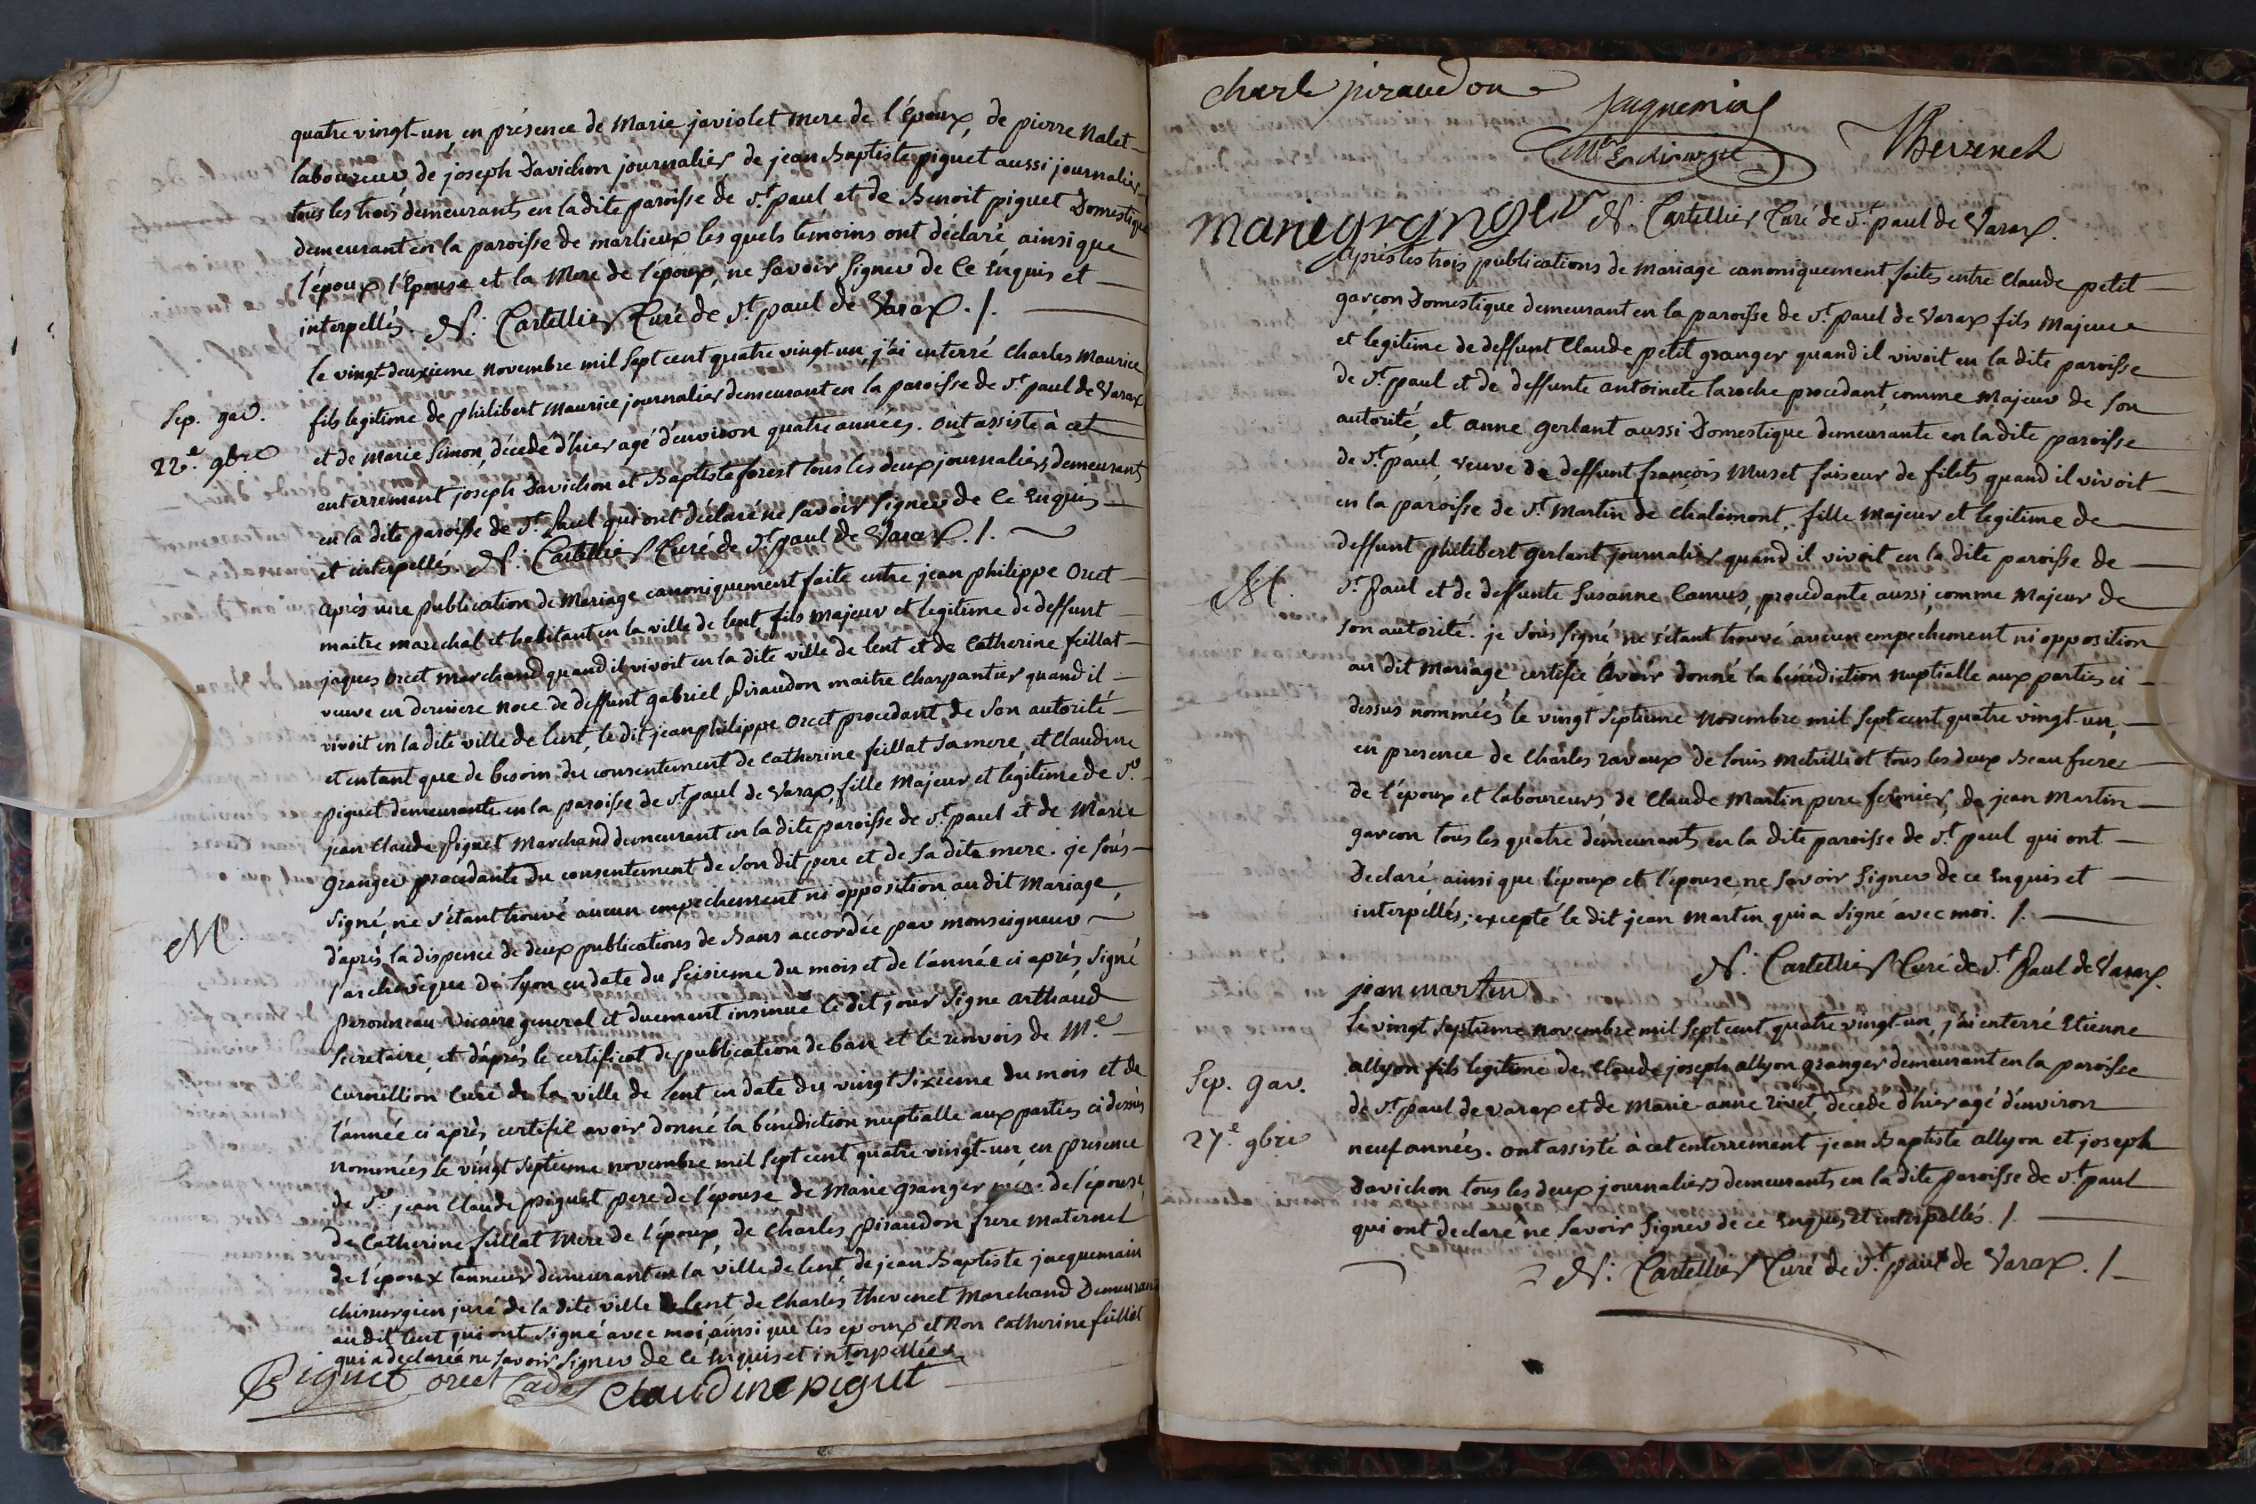 quatre vingt-un, en présence de Marie javiolet mere de l'époux, de pierre Nalet
laboureur de joseph Davichon journalier de jean Baptiste piguet aussi journalier
tous les trois demeurants en la dite paroisse de St paul et de Benoit piguet Domestique
demeurant en la paroisse de marlieux les quels témoins ont déclaré ainsi que
l'époux l'Epouse et la Mere de l'époux, ne savoir signer de ce Enquis et
interpellés. N: Cartellier Curé de St paul de Varax ./.
Sep. gav.
22e. 9bre
le vingt-deuxieme novembre mil sept cent quatre vingt-un j'ai enterré Charles Maurice
fils legitime de philibert Maurice journalier demeurant en la paroisse de St paul de Varax
et de Marie Simon, décedé d'hier agé d'environ quatre années. ont assisté à cet
enterrement joseph Davichon et Baptiste forest tous les deux journaliers demeurants
en la dite paroisse de St Paul qui ont déclaré ne savoir signer de ce Enquis
et interpellés N: Cartellier Curé de St paul de Varax ./.
M.
après une publication de Mariage canoniquement faite entre jean philippe Orcet
maitre marechal et habitant en la ville de lent fils majeur et legitime de deffunt
jaques Orcet marchand quand il vivoit en la dite ville de lent et de Catherine feillat
veuve en derniere noce de deffunt gabriel Piraudon maitre Charpantier quand il
vivoit en la dite ville de lent, le dit jean philippe Orcet procedant de son autorité
et entant que de besoin du consentement de Catherine feillat sa mere, et Claudine
piguet demeurante en la paroisse de St paul de Varax, fille Majeur et legitime de Sr
jean Claude Piguet Marchand demeurant en la dite paroisse de St paul et de Marie
Granger procedante du consentement de son dit pere et de sa dite mere. je sous
signé, ne s'étant trouvé aucun empechement ni opposition au dit Mariage,
d'après la dispence de deux publications de Bans accordée par monseigneur
l'archevêque de Lyon en date du seisieme du mois et de l'année ci après, signé
perouneau vicaire general et duement insinué le dit jour signe arthaud
secretaire, et d'après le certificat de publication de ban et le renvois de Me
curé de la ville de lent en date du vingt sixieme du mois et de
l'année ci après, certifie avoir donné la bénédiction nuptialle aux parties ci dessus
nommées le vingt septieme novembre mil sept cent quatre vingt-un, en presence
de Sr jean Claude piguet pere de l'épouse de Marie granger mere de l'épouse,
de Catherine feillat Mere de l'époux, de Charles Piraudon frere maternel
de l'époux tanneur demeurant en la ville de lent de jean Baptiste jacquemain
chirurgien juré de la dite ville de lent de Charles thevenet Marchand Demeurant
au dit lent qui ont signé avec moi, ainsi que les epoux et non Catherine feillat
qui a declarée ne savoir signer de ce Enquis et interpellée
Piguet orcet Cadet Claudine piguet
charle piraudon
Jaquemin
Me En chirurgie
Thevenet
marie granger N: Cartellier Curé de St paul de Varax.
M.
Après les trois publications de Mariage canoniquement faites entre Claude petit
garçon Domestique demeurant en la paroisse de St paul de Varax fils Majeur
et legitime de deffunt Claude petit granger quand il vivoit en la dite paroisse
de St paul et de deffunte antoinete laroche procedant, comme Majeur de son
autorité, et anne gerlant aussi Domestique demeurante en la dite paroisse
de St paul, veuve de deffunt françois Muset faiseur de filets quand il vivoit
en la paroisse de St Martin de Chalamont, fille Majeur et legitime de
deffunt philibert gerlant journalier quand il vivoit en la dite paroisse de
St Paul et de deffunte Susanne Camus, procedante aussi, comme Majeur de
son autorité. je sous signé ne s'étant trouvé aucun empechement ni opposition
au dit Mariage certifie Avoir donné la bénédiction nuptialle aux parties ci
dessus nommées le vingt septieme Novembre mil sept cent quatre vingt-un,
en presence de Charles ravaux de louis Metrilliot tous les deux Beau frere
de l'époux et laboureurs de Claude Martin pere fermier, de jean Martin
garçon tous les quatre demeurants en la dite paroisse de St paul qui ont
Declaré ainsi que l'époux et l'épouse ne savoir signer de ce Enquis et
interpellés, excepté le dit jean Martin qui a signé avec moi ./.
N: Cartellier Curé de St Paul de Varax.
jean martin
Sep. gav.
27e. 9bre
Le vingt septieme novembre mil sept cent quatre vingt-un j'ai enterré Etienne
allyon fils legitime de Claude joseph allyon granger demeurant en la paroisse
de St paul de varax et de Marie-anne rivet, decedé d'hier agé d'environ
neuf années. ont assisté à cet enterrement jean Baptiste allyon et joseph
Davichon tous les deux journaliers demeurants en la dite paroisse de St paul
qui ont declaré ne savoir signer de ce Enquis et interpellés ./.
N: Cartellier Curé de St paul de Varax ./.